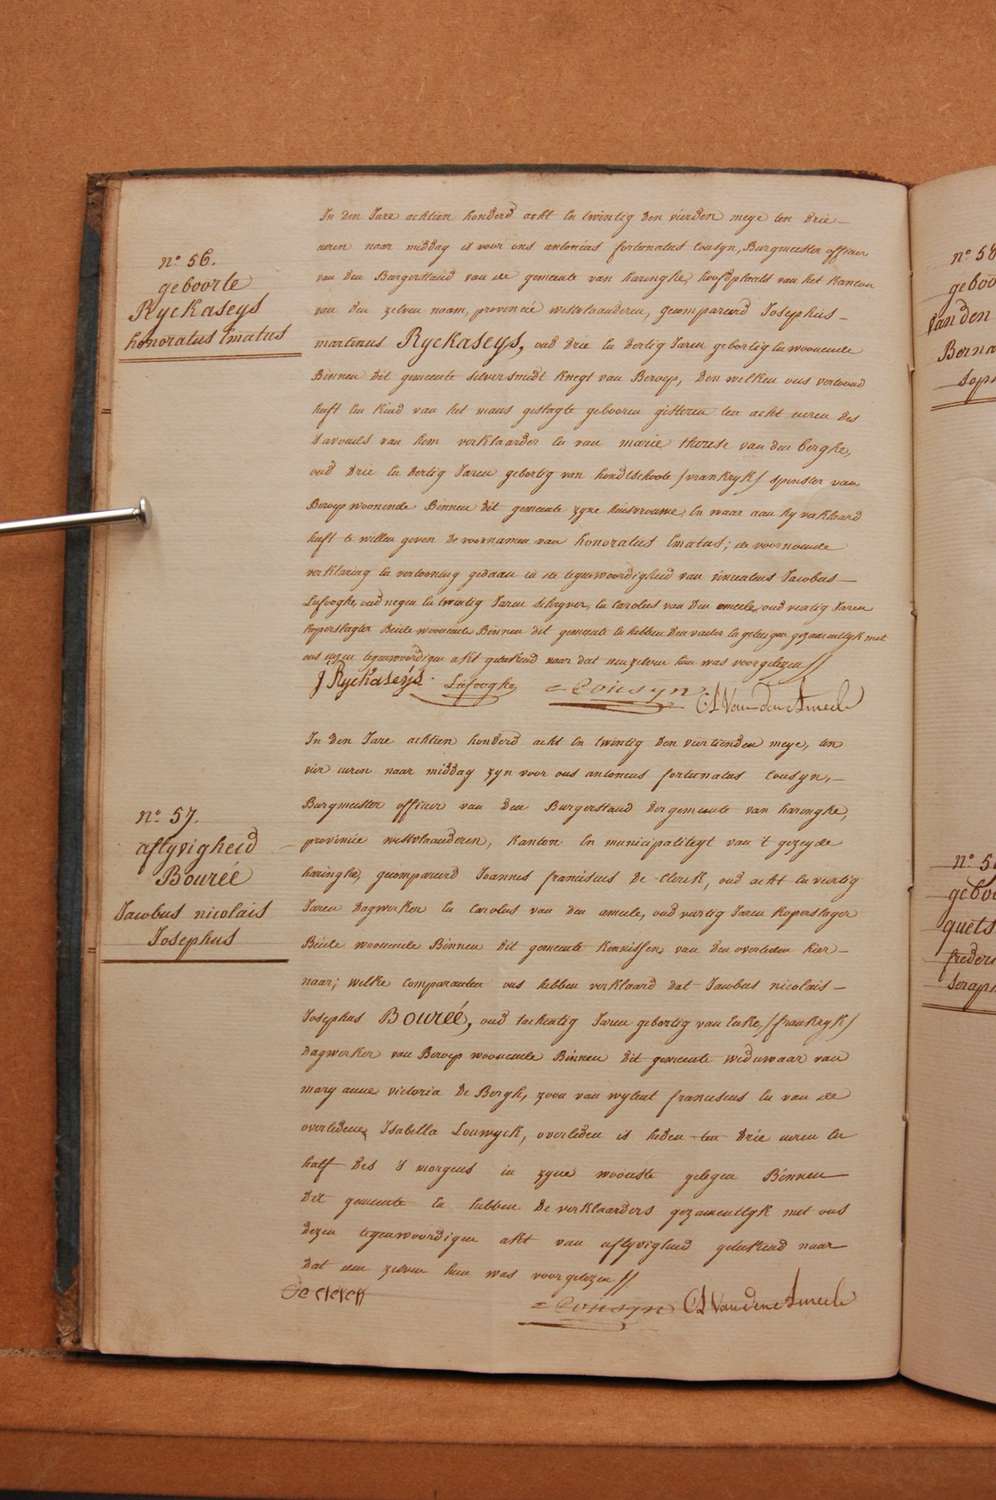 n.º 56.
geboorte
Ryckaseys
honoratus Imatus
In den Jare achtien honderd acht En twintig den vierden meye ten drie
uren naar middag is voor ons antonius fortunatus Cousyn, Burgmeester officier
van den Burgerstand van de gemeente van haringhe, hoofdplaets van het kanton
van den zelven naam, provincie westvlaanderen, gecompareerd Josephus
martinus Ryckaseys, oud drie En dertig Jaren geboortig En woonende
Binnen dit gemeente silversmidt knegt van Beroep, Den welken ons vertoond
heeft Een kind van het mans geslagte gebooren gisteren ten acht uren des
s'avonds van hem verklaarder En van marie therese van den berghe,
oud drie En dertig Jaren geboortig van hondtschoote /vrankryk/ spinster van
Beroep woonende Binnen dit gemeente zyne huisvrouwe, En waar aan hy verklaard
heeft te willen geven de voornamen van honoratus Imatus; de voornoemde
verklaring En vertooning gedaan in de tegenwoordigheid van Jacobus
Lafooghe, oud negen En twintig Jaren schryver, En Carolus van den ameele, oud veertig Jaren
koperslager Beide woonende Binnen dit gemeente En hebben den vader En getuigen gezamentlyk met
ons dezen tegenwoordigen akt geteekend naar dat een zelven hun was voorgelezen //
J Ryckaseÿs. Lafooghe Cousyn CL Vanden Ameele
n.º 57.
aflyvigheid
Boureé
Jacobus nicolais
Josephus
In den Jare achtien honderd acht En twintig den viertienden meye, ten
vier uren naar middag zyn voor ons antonius fortunatus Cousyn,
Burgmeester officier van den Burgerstand der gemeente van haringhe,
provincie westvlaanderen, kanton En municipaliteyt van 't gezeyde
haringhe, gecompareerd Joannes franciscus De Clerck, oud acht En veertig
Jaren dagwerker En Carolus van den ameele, oud veertig Jaren koperslager
Beide woonende Binnen dit gemeente kennissen, van den overleden hier
naar; welke comparanten ons hebben verklaard dat Jacobus nicolais
Josephus Boureé, oud tachentig Jaren geboortig van /frankryk/
dagwerker van Beroep woonende Binnen dit gemeente weduwaar van
mary anne victoria de Bergh, zoon van wylent franciscus En van de
overledene, Isabella Louwyck, overleden is heden ten drie uren En
half des s'morgens in zyne wooniste gelegen Binnen
dit gemeente En hebben de verklaarders gezamentlyk met ons
dezen tegenwoordigen akt van aflyvigheid geteekend naar
dat een zelven hun was voorgelezen //
De clerck Cousyn CL Vanden Ameele
n.º 58
geboo
Van den
Berna
Soph
n.º 5
geboo
quets
freder
Seraph